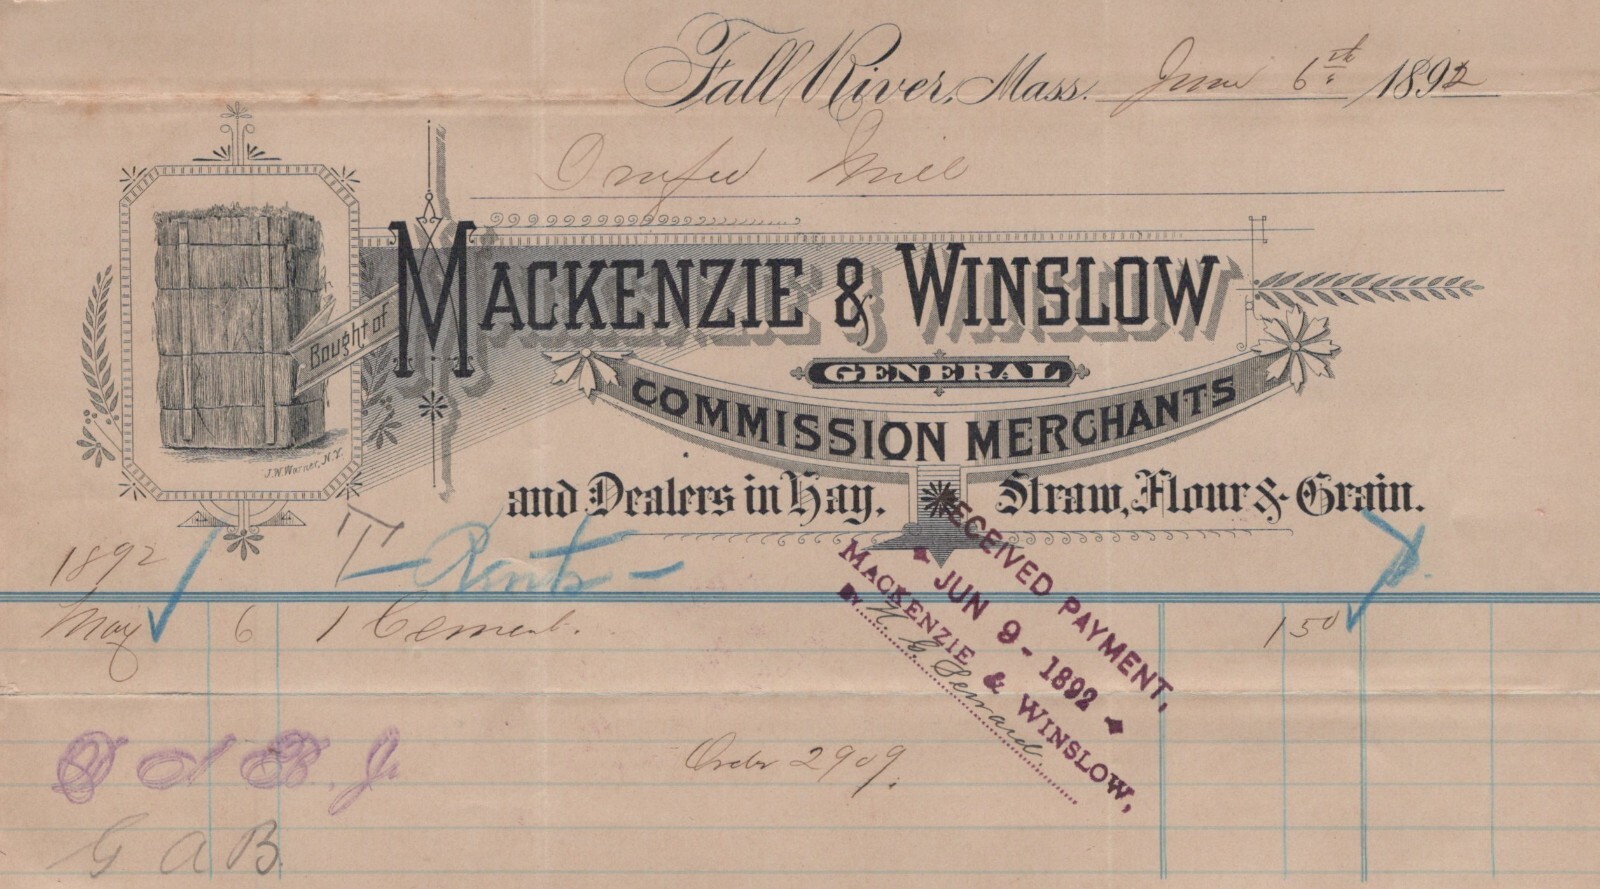 Fall River, Mass. June 6th 1892
Mill
Bought of
MACKENZIE & WINSLOW
GENERAL
COMMISSION MERCHANTS
and Dealers in Hay, Straw, Flour & Grain.
J.W. Warner, N.Y.
1892
May 6 1 Cement. 150
RECEIVED PAYMENT,
JUN 9 - 1892
MACKENZIE & WINSLOW,
BY
Order 2909.
G A B.